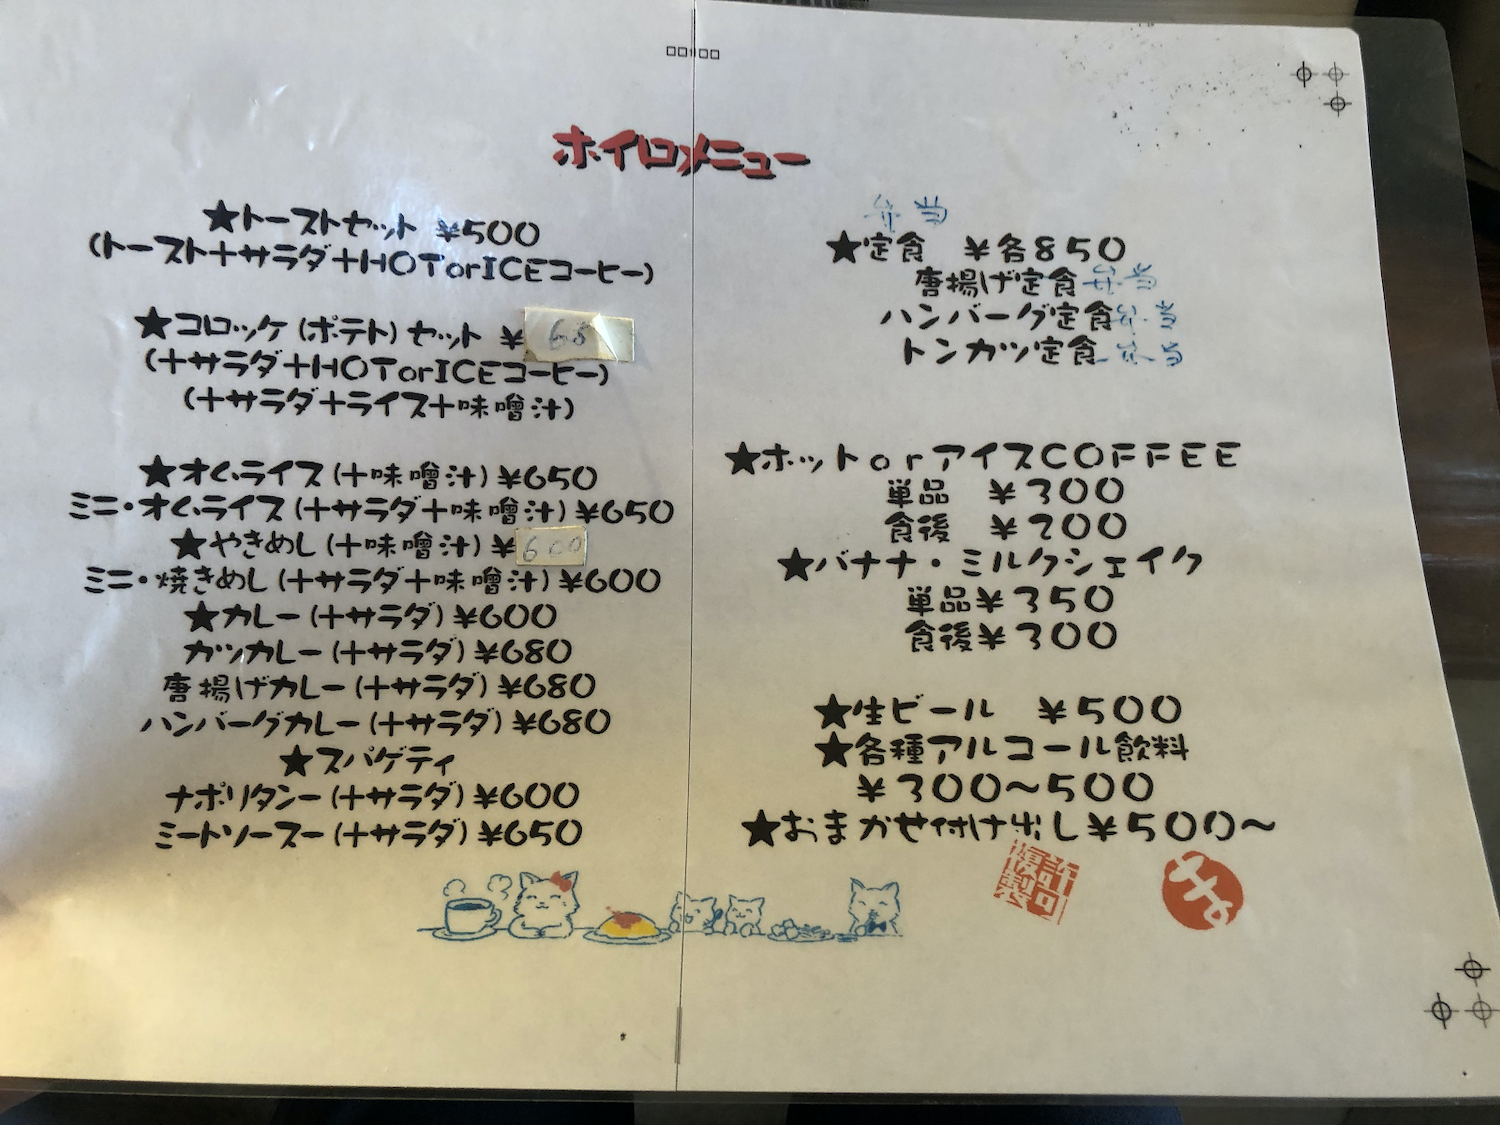 ホイロメニュー
★トーストセット ¥500
(トースト+サラダ+HOTorICEコーヒー)
★コロッケ(ポテト)セット ¥
(+サラダ+HOTorICEコーヒー)
(+サラダ+ライス+味噌汁)
★オムライス(+味噌汁)¥650
ミニ・オムライス(+サラダ+味噌汁)¥650
★やきめし(+味噌汁)¥600
ミニ・焼きめし(+サラダ+味噌汁)¥600
★カレー(+サラダ)¥600
カツカレー(+サラダ)¥680
唐揚げカレー(+サラダ)¥680
ハンバーグカレー(+サラダ)¥680
★スパゲティ
ナポリタンー(+サラダ)¥600
ミートソースー(+サラダ)¥650
弁当
★定食 ¥各850
唐揚げ定食 弁当
ハンバーグ定食 弁当
トンカツ定食 弁当
★ホットorアイスCOFFEE
単品 ¥300
食後 ¥200
★バナナ・ミルクシェイク
単品¥350
食後¥300
★生ビール ¥500
★各種アルコール飲料
¥300~500
★おまかせ付け出し¥500~
許可
複製